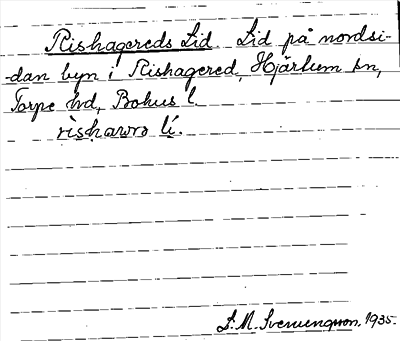 Rishagereds Lid. Lid på nordsi-
-dan byn i Rishagered, Hjärtum sn,
Torpe hd, Bohus l.
rìshawrə lí.
S. M. Svenungsson. 1935.